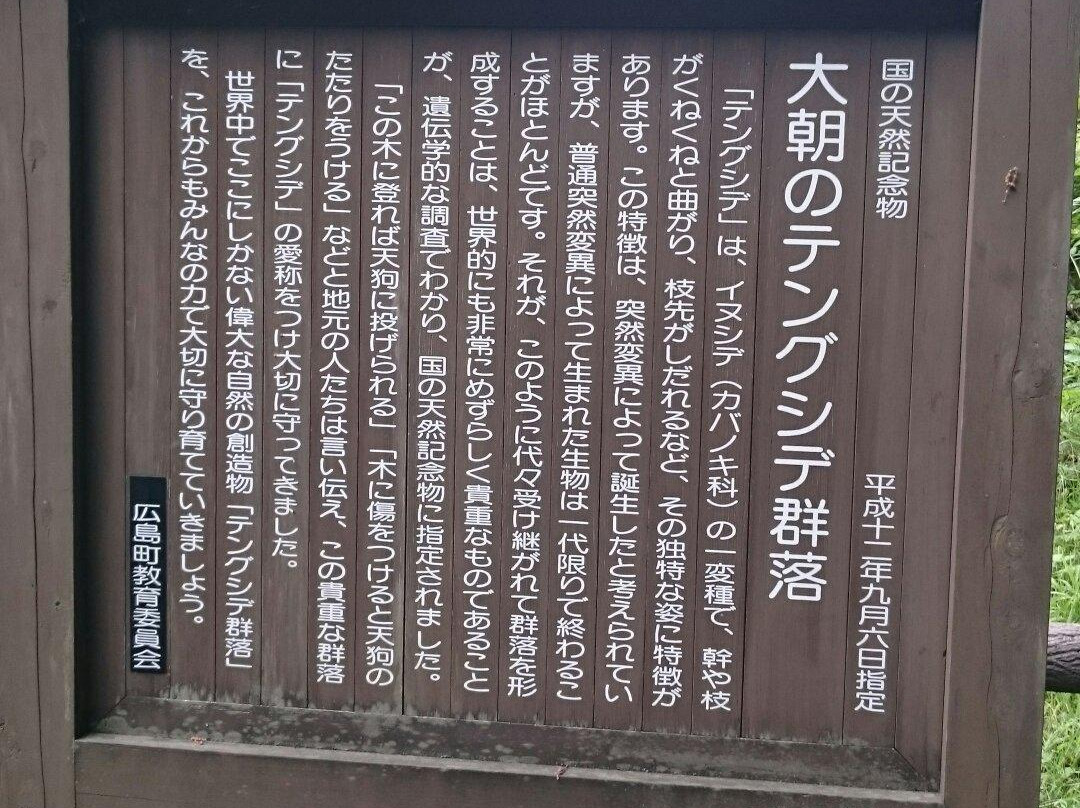 国の天然記念物
平成十二年九月六日指定
大朝のテングシデ群落
「テングシデ」は、イヌシデ（カバノキ科）の一変種で、幹や枝
がくねくねと曲がり、枝先がしだれるなど、その独特な姿に特徴が
あります。この特徴は、突然変異によって誕生したと考えられてい
ますが、普通突然変異によって生まれた生物は一代限りで終わるこ
とがほとんどです。それが、このように代々受け継がれて群落を形
成することは、世界的にも非常にめずらしく貴重なものであること
が、遺伝学的な調査でわかり、国の天然記念物に指定されました。
「この木に登れば天狗に投げられる」「木に傷をつけると天狗の
たたりをうける」などと地元の人たちは言い伝え、この貴重な群落
に「テングシデ」の愛称をつけ大切に守ってきました。
世界中でここにしかない偉大な自然の創造物「テングシデ群落」
を、これからもみんなの力で大切に守り育てていきましょう。
広島町教育委員会